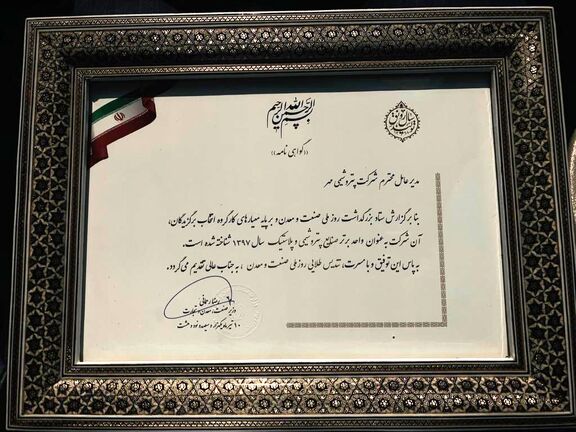 بسم الله الرحمن الرحیم
«گواهی نامه»
مدیرعامل محترم شرکت پتروشیمی مهر
بنا بر گزارش ستاد بزرگداشت روز ملی صنعت و معدن و بر پایه معیارهای کارگروه انتخاب برگزیدگان،
آن شرکت به عنوان واحد برتر صنایع پتروشیمی و پلاستیک سال ۱۳۹۷ شناخته شده است.
به پاس این توفیق و با مسرت، تندیس طلایی روز ملی صنعت و معدن ، به جناب عالی تقدیم می گردد.
رضا رحمانی
وزیر صنعت، معدن و تجارت
۱۰ تیرماه یکهزار و سیصد و نود و هشت